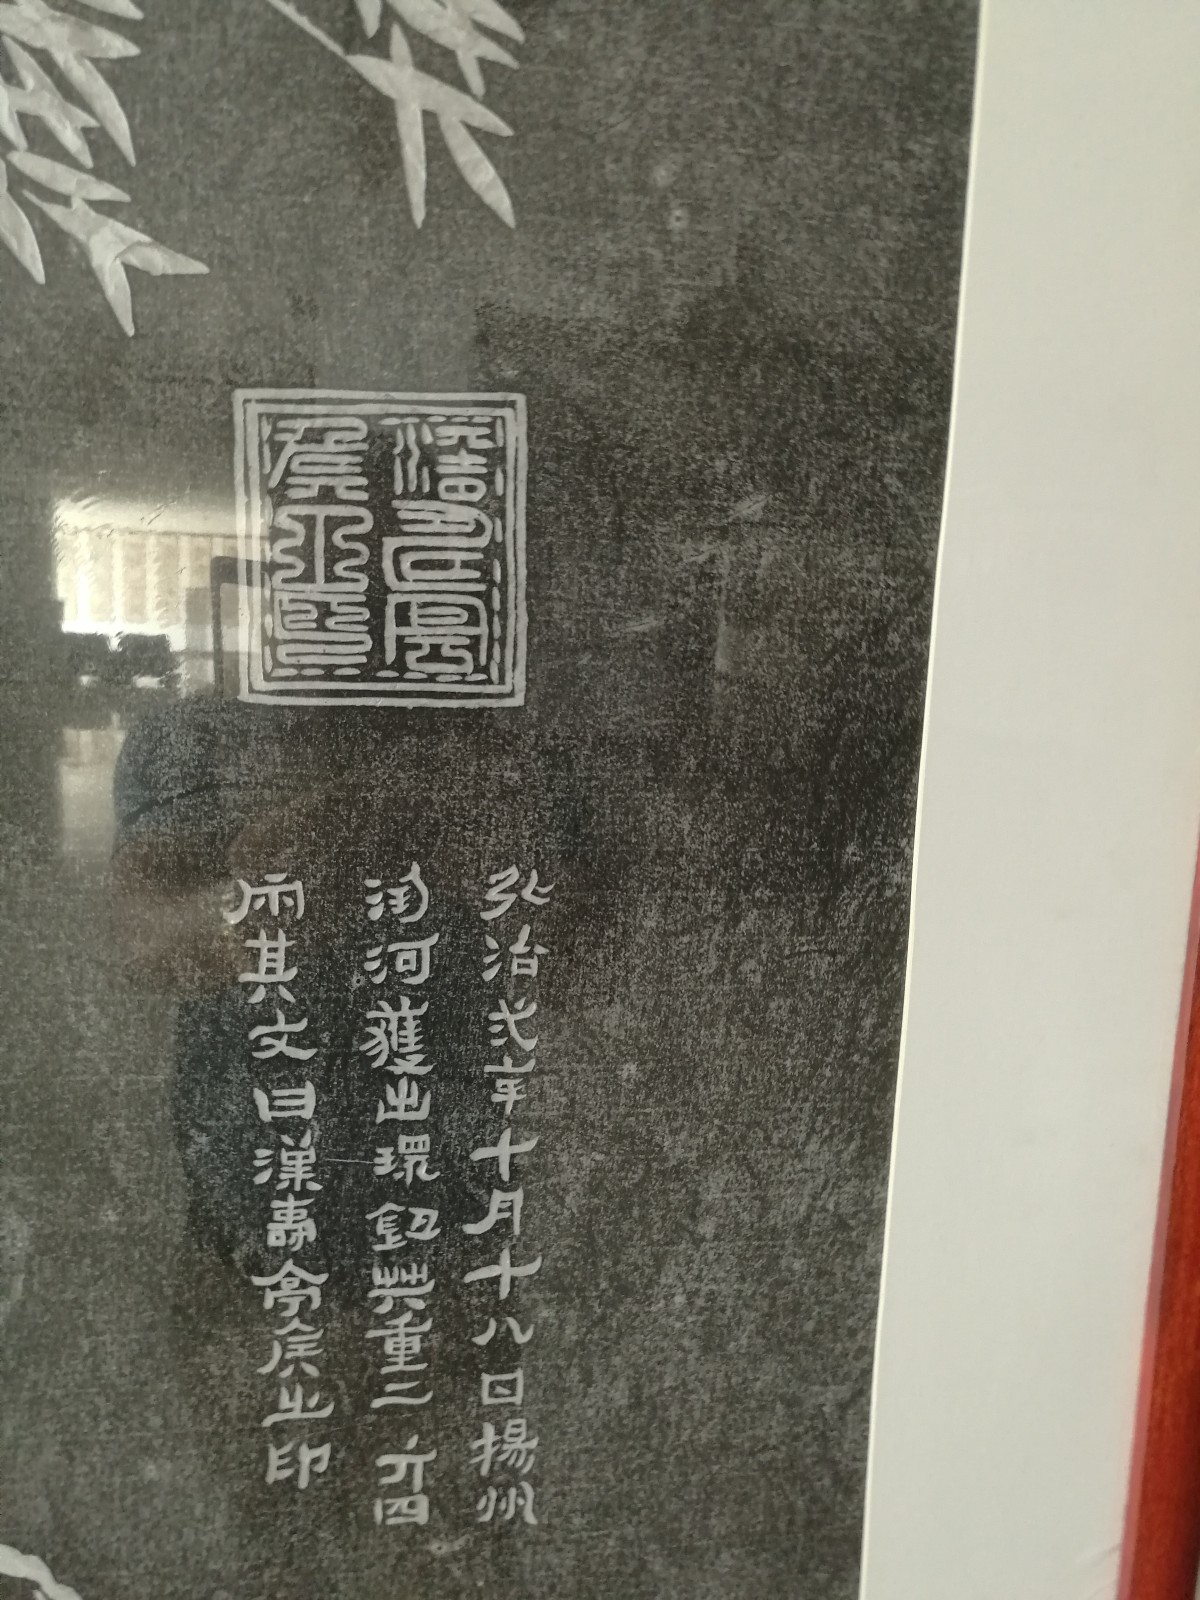 漢壽亭
侯之印
弘治弍年十月十八日揚州
淘河獲出環鈕共重二斤四
兩其文曰漢壽亭侯之印